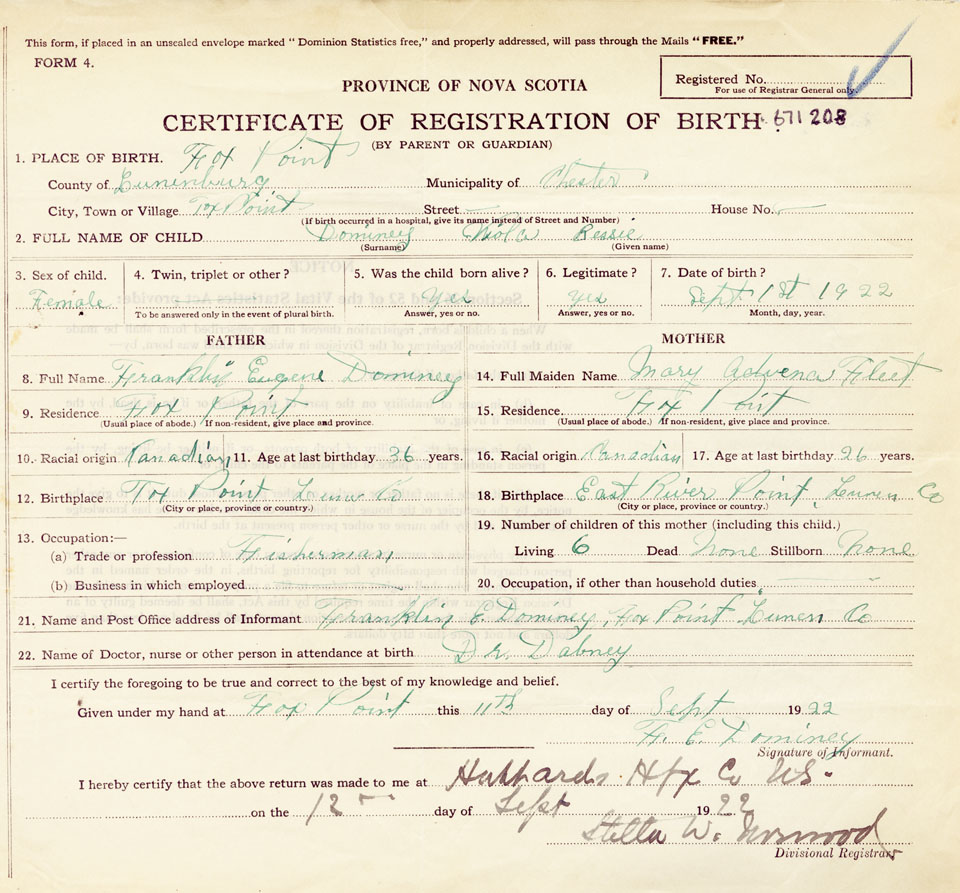 This form, if placed in an unsealed envelope marked "Dominion Statistics free," and properly addressed, will pass through the Mails "FREE."
FORM 4.
Registered No.
For use of Registrar General only.
PROVINCE OF NOVA SCOTIA
CERTIFICATE OF REGISTRATION OF BIRTH 671 208
(BY PARENT OR GUARDIAN)
1. PLACE OF BIRTH. Fox Point
County of Lunenburg Municipality of Chester
City, Town or Village Fox Point Street House No.
(If birth occurred in a hospital, give its name instead of Street and Number)
2. FULL NAME OF CHILD Dominey Viola Bessie
(Surname) (Given name)
3. Sex of child. 4. Twin, triplet or other? 5. Was the child born alive? 6. Legitimate? 7. Date of birth?
Female Yes yes Sept 1st 1922
To be answered only in the event of plural birth. Answer, yes or no. Answer, yes or no. Month, day, year.
FATHER MOTHER
8. Full Name Franklin Eugene Dominey 14. Full Maiden Name Mary Advena Fleet
9. Residence Fox Point 15. Residence. Fox Point
(Usual place of abode.) If non-resident, give place and province. (Usual place of abode.) If non-resident, give place and province.
10. Racial origin Canadian 11. Age at last birthday 36 years. 16. Racial origin Canadian 17. Age at last birthday 26 years.
12. Birthplace Fox Point Lunen Co 18. Birthplace East River Point, Lunen Co
(City or place, province or country.) (City or place, province or country.)
13. Occupation:— 19. Number of children of this mother (including this child.)
(a) Trade or profession Fisherman Living 6 Dead None Stillborn None
(b) Business in which employed 20. Occupation, if other than household duties
21. Name and Post Office address of Informant Franklin E. Dominey, Fox Point Lunen Co
22. Name of Doctor, nurse or other person in attendance at birth Dr. Dabney
I certify the foregoing to be true and correct to the best of my knowledge and belief.
Given under my hand at Fox Point this 11th day of Sept 1922
F. E. Dominey
Signature of Informant.
I hereby certify that the above return was made to me at Hubbards Hfx Co NS.
on the 12 day of Sept 1922
Stella W. Norwood
Divisional Registrar